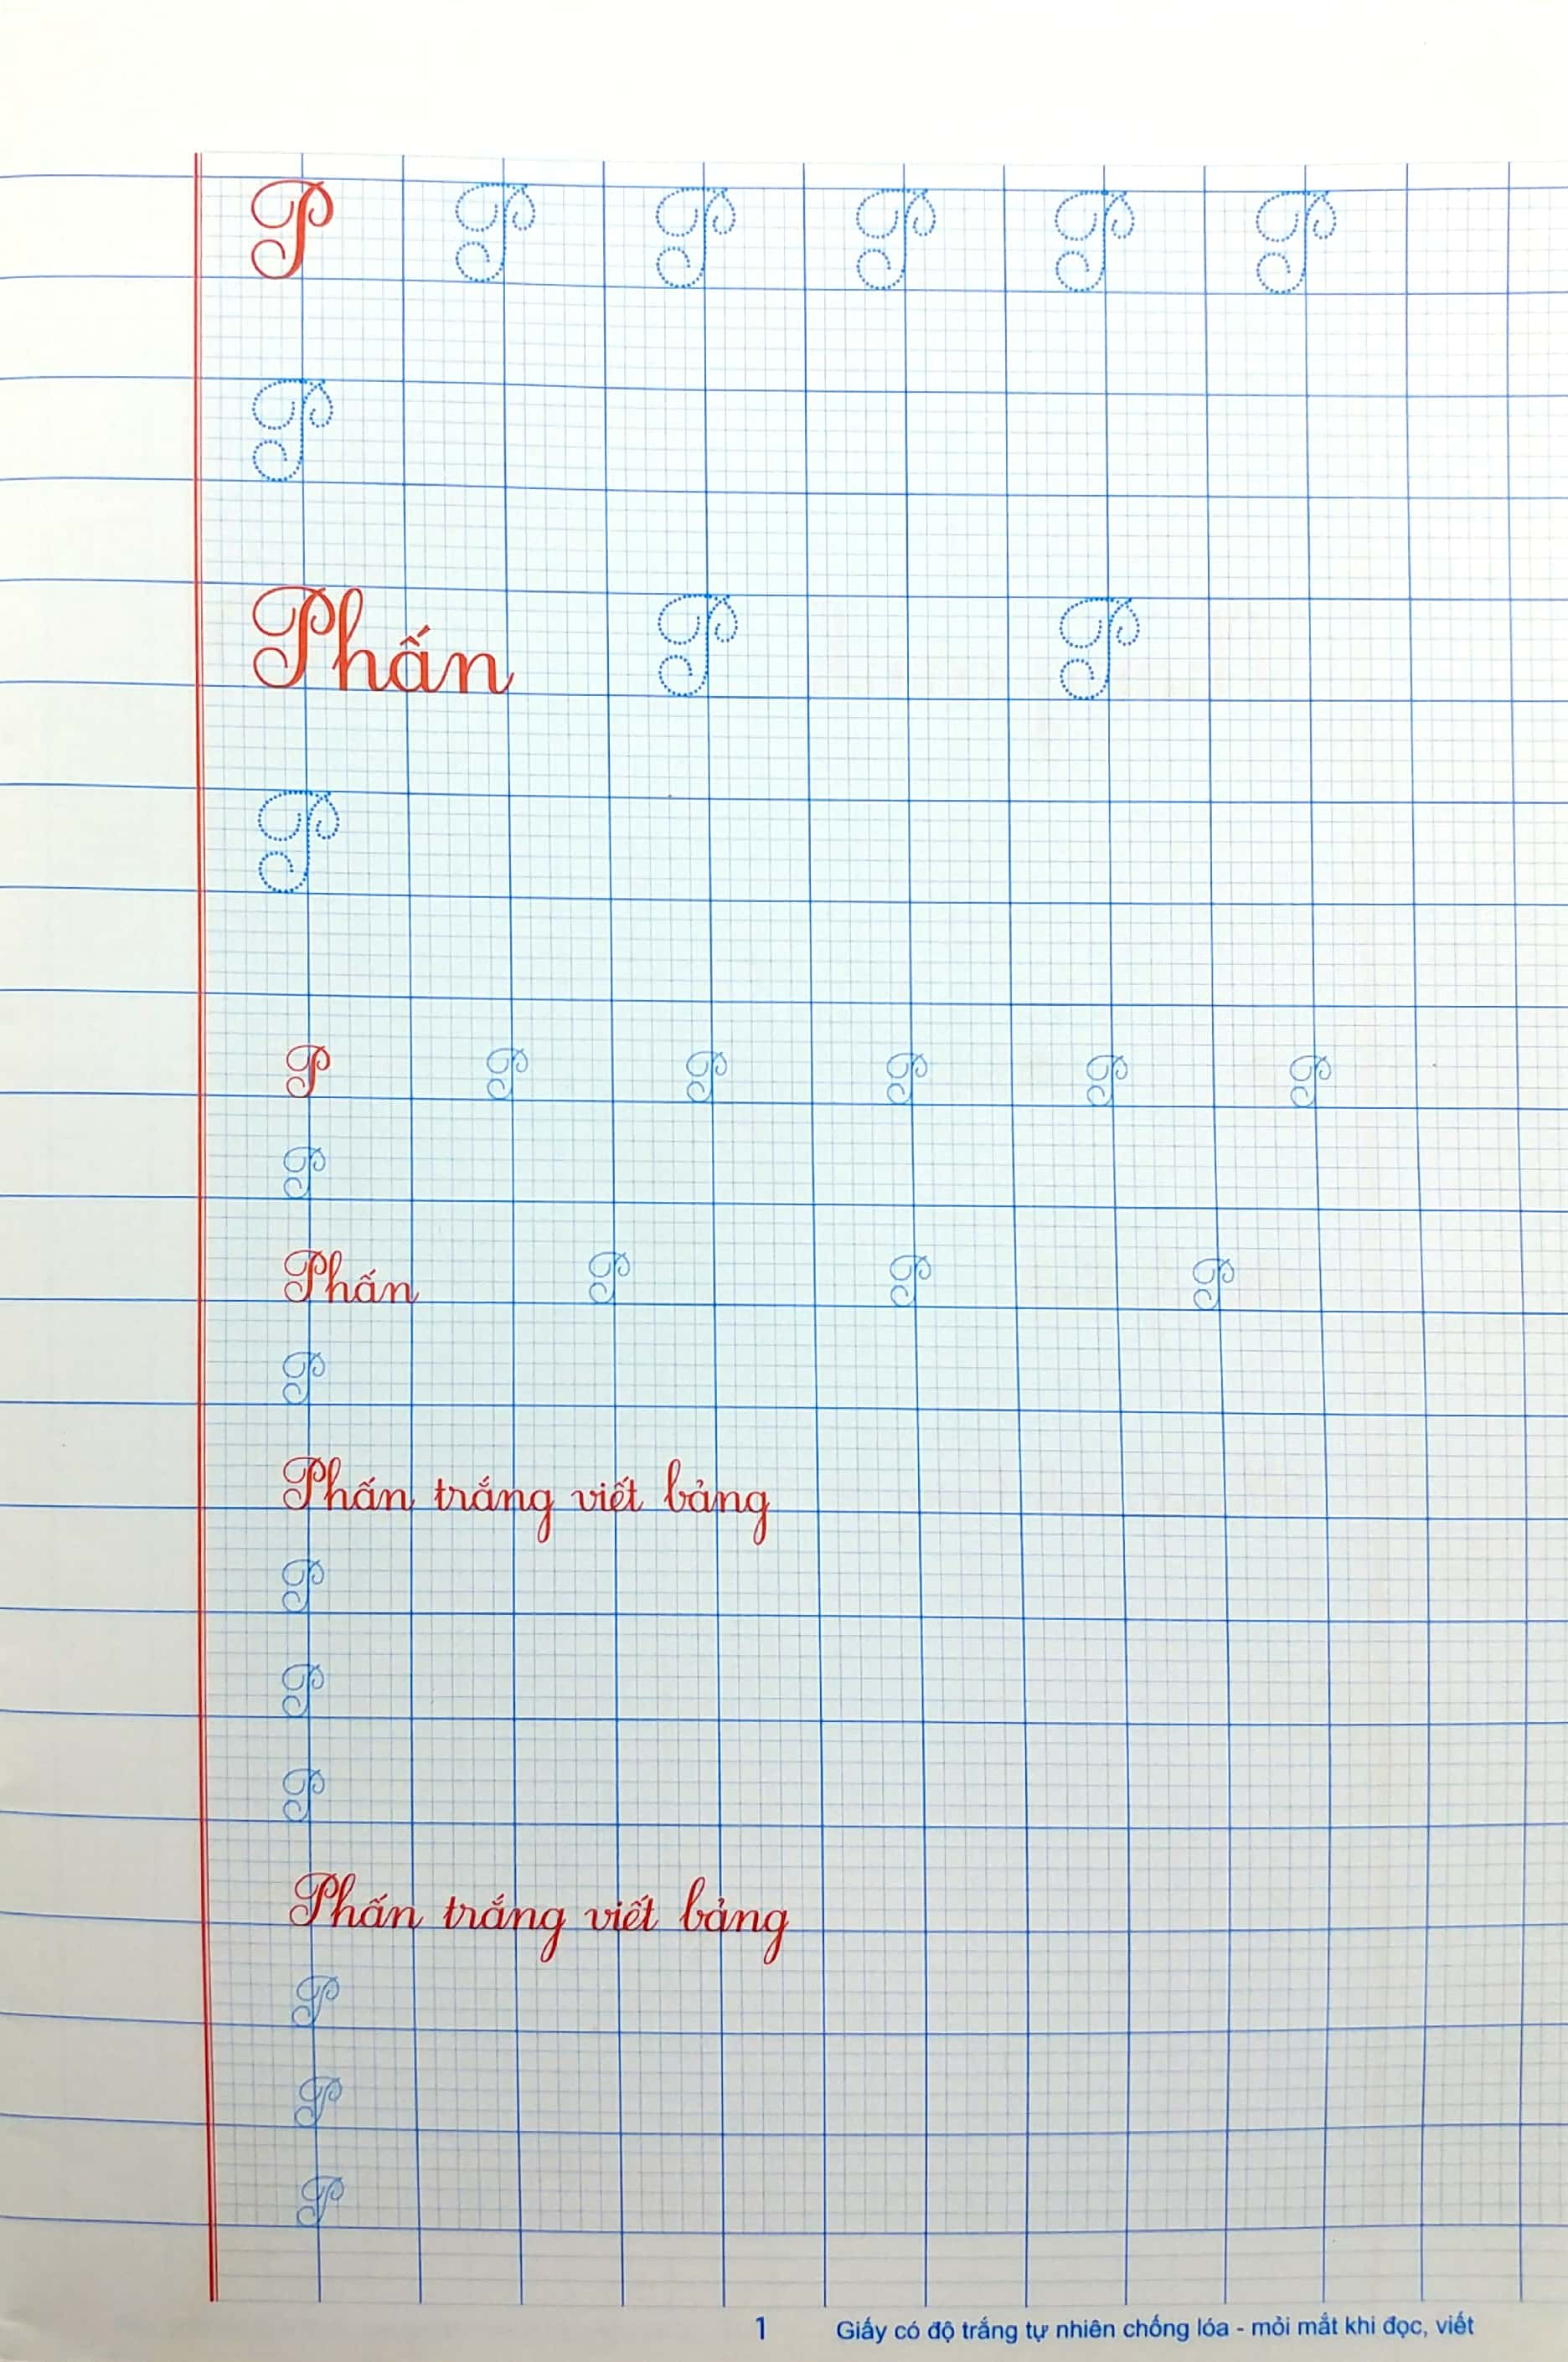 P P P P P P
P
Phấn P P
P
P P P P P P
P
Phấn P P P
P
Phấn trắng viết bảng
P
P
P
Phấn trắng viết bảng
P
P
P
1 Giấy có độ trắng tự nhiên chống lóa - mỏi mắt khi đọc, viết